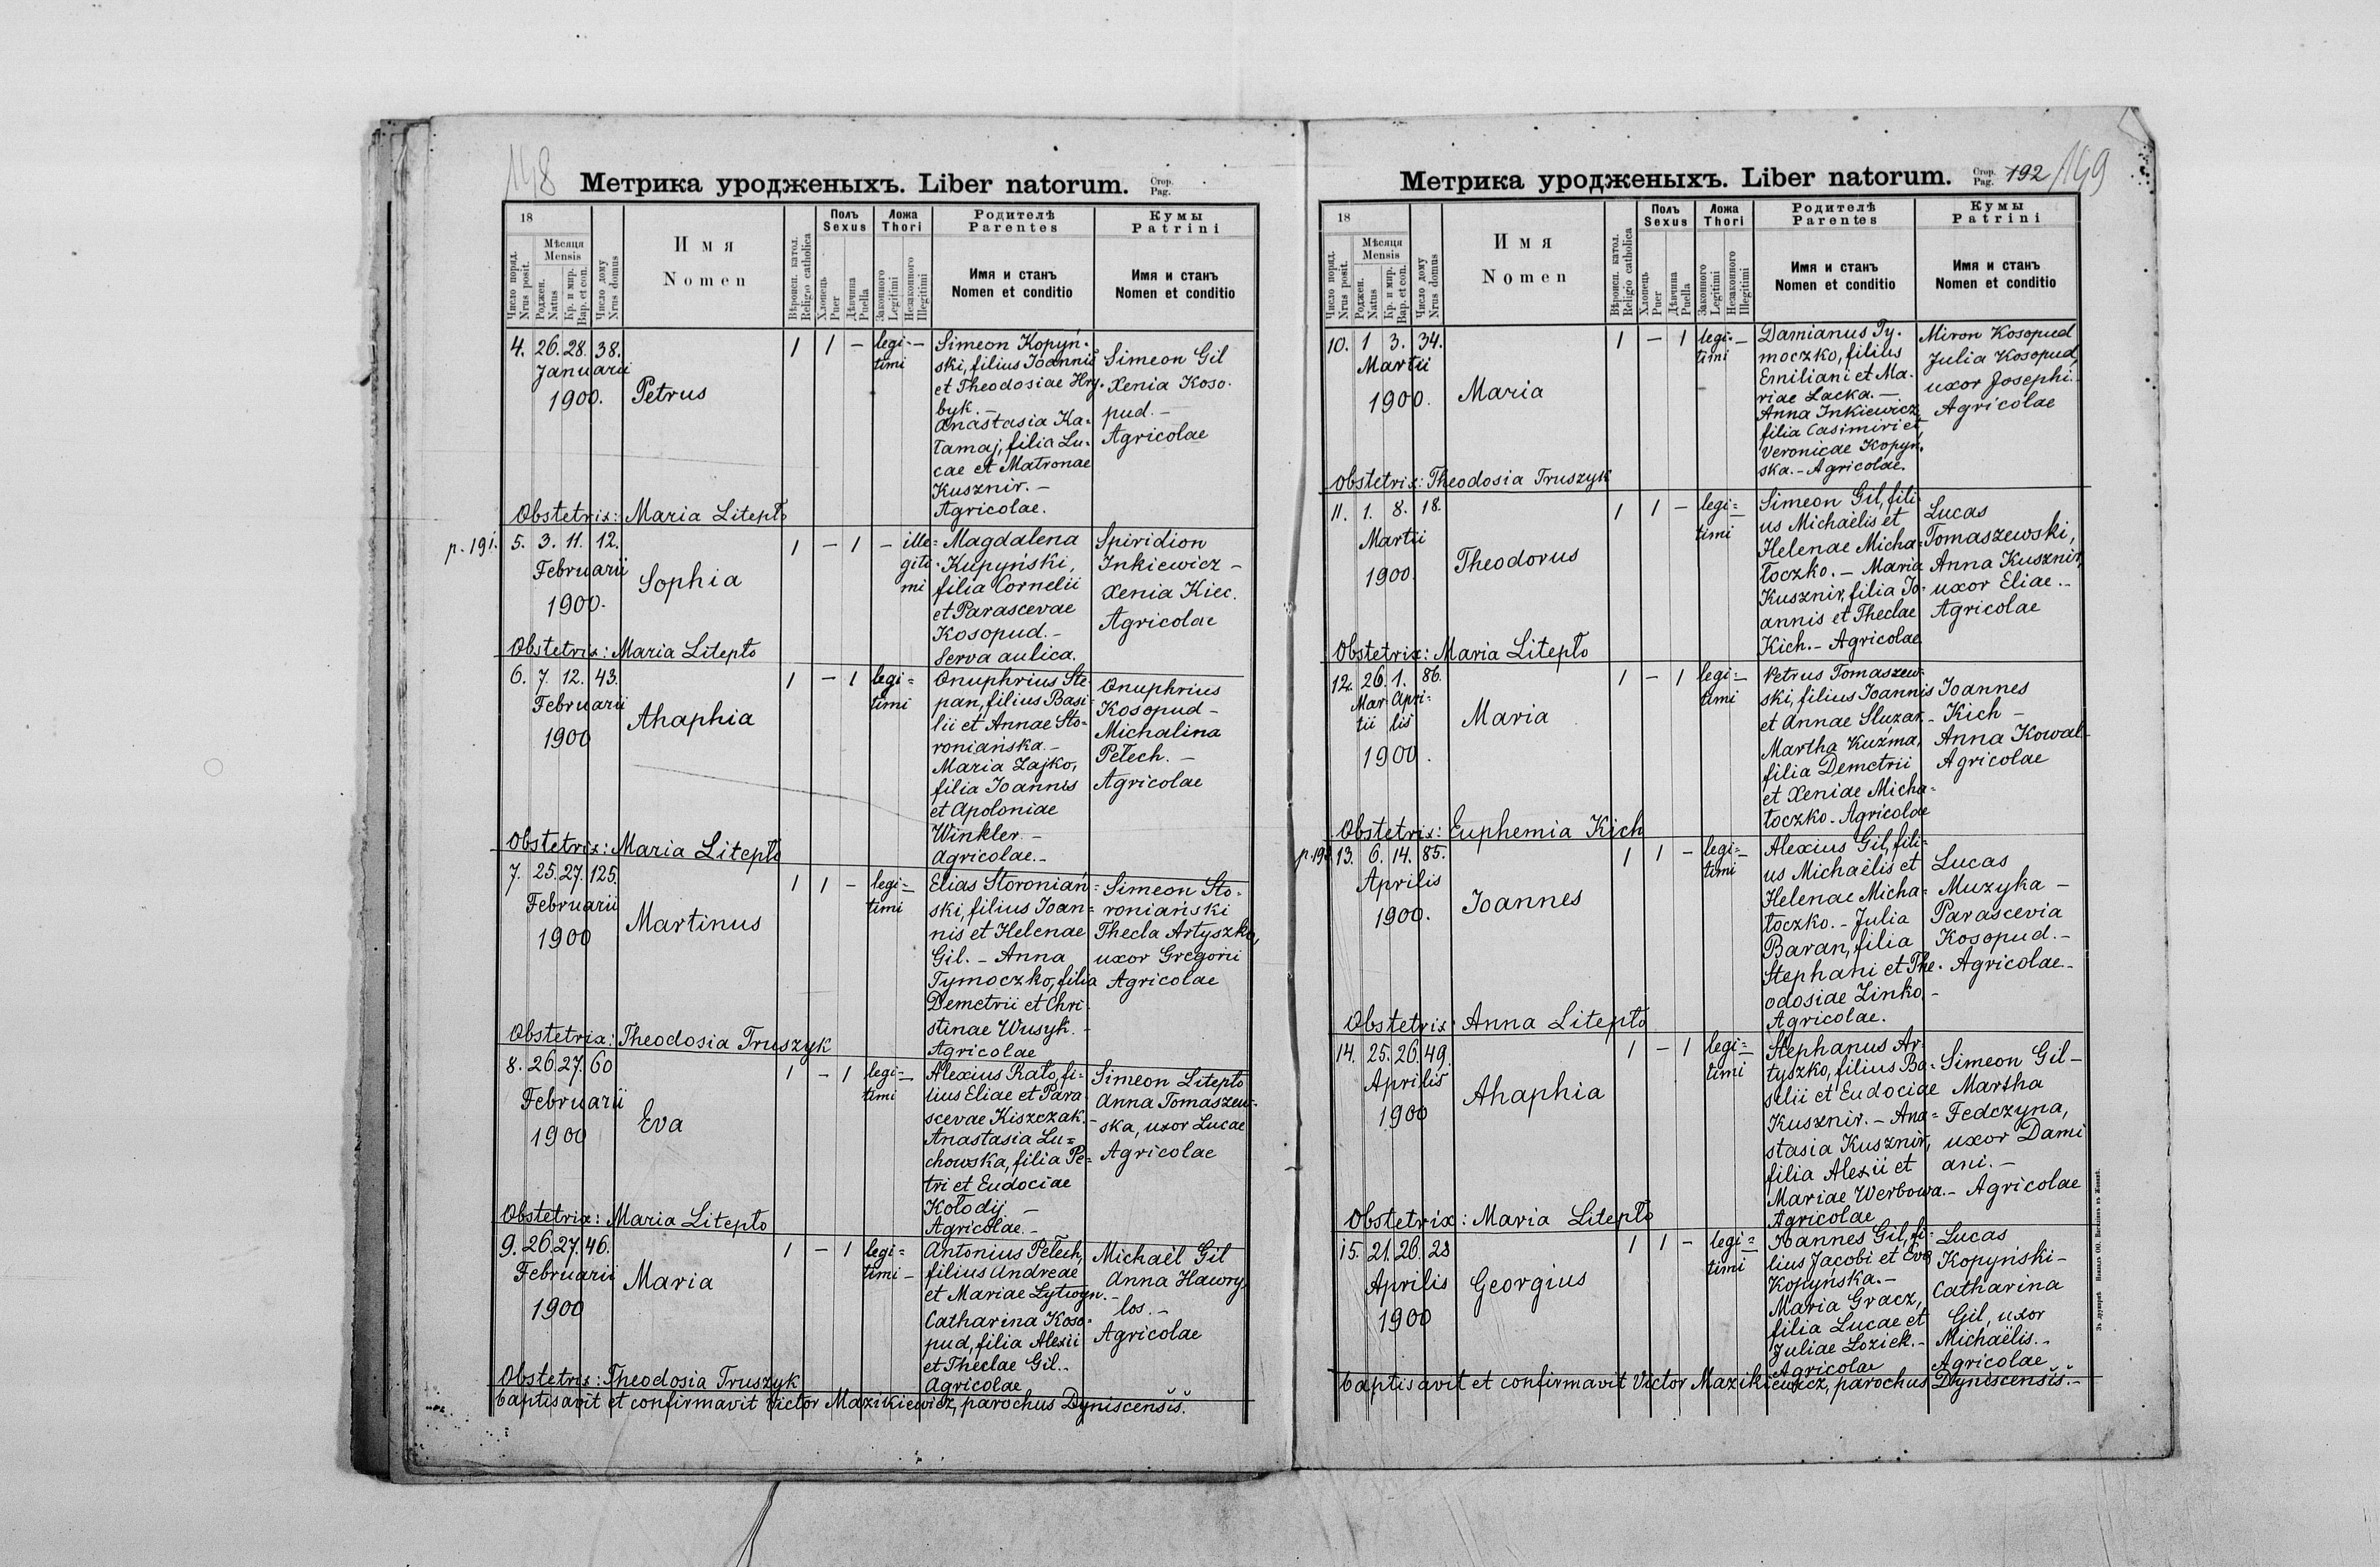 148
Метрика уродженыхъ. Liber natorum. Стор. Pag.
18
Число поряд. Nrus posit.
Мѣсяця Mensis
Роджен. Natus
Кр. и мир. Bap. et con.
Число дому Nrus domus
Имя
Nomen
Вѣроисп. катол. Religio catholica
Полъ Sexus
Хлопець Puer
Дѣвчина Puella
Ложа Thori
Законного Legitimi
Незаконного Illegitimi
Родителѣ
Parentes
Имя и станъ
Nomen et conditio
Кумы
Patrini
Имя и станъ
Nomen et conditio
4. 26. 28. 38.
Januarii
1900.
Petrus
1 1 –
legi- –
timi
Simeon Kopyń-
ski, filius Joannis
et Theodosiae Hry-
byk. –
Anastasia Ka-
łamaj, filia Lu-
cae et Matronae
Kusznir. –
Agricolae.
Simeon Gil
Xenia Koso-
pud. –
Agricolae
Obstetrix: Maria Litepło
p. 191.
5. 3. 11. 12.
Februarii
1900.
Sophia
1 – 1
– ille-
giti-
mi
Magdalena
Kupyński,
filia Cornelii
et Parascevae
Kosopud. –
Serva aulica.
Spiridion
Inkiewicz –
Xenia Kiec.
Agricolae
Obstetrix: Maria Litepło
6. 7. 12. 43.
Februarii
1900
Ahaphia
1 – 1
legi=
timi
Onuphrius Ste-
pan, filius Basi-
lii et Annae Sto-
roniańska. –
Maria Zajko,
filia Joannis
et Apoloniae
Winkler –
Agricolae. –
Onuphrius
Kosopud –
Michalina
Pełech. –
Agricolae
Obstetrix: Maria Litepło
7. 25. 27. 125.
Februarii
1900
Martinus
1 1 –
legi= –
timi
Elias Storoniań=
ski, filius Joan=
nis et Helenae
Gil. – Anna
Tymoczko, filia
Demetrii et Chri-
stinae Wusyk. –
Agricolae
Simeon Sto-
roniański
Thecla Artyszko,
uxor Gregorii
Agricolae
Obstetrix: Theodosia Truszyk
8. 26. 27. 60
Februarii
1900
Eva
1 – 1
legi= –
timi
Alexius Rato, fi-
lius Eliae et Para-
scevae Kiszczak. –
Anastasia Lu=
chowska, filia Pe=
tri et Eudociae
Kołodij –
Agricolae. –
Simeon Litepło
Anna Tomaszew-
ska, uxor Lucae
Agricolae
Obstetrix: Maria Litepło
9. 26. 27. 46.
Februarii
1900
Maria
1 – 1
legi=
timi –
Antonius Pełech,
filius Andreae
et Mariae Lytwyn. –
Catharina Koso-
pud, filia Alexii
et Theclae Gil. –
Agricolae
Michaël Gil
Anna Hawry-
los. –
Agricolae
Obstetrix: Theodosia Truszyk
baptisavit et confirmavit Victor Mazikiewicz, parochus Dyniscensis.
Метрика уродженыхъ. Liber natorum. Стор. Pag. 192 / 149
18
Число поряд. Nrus posit.
Мѣсяця Mensis
Роджен. Natus
Кр. и мир. Bap. et con.
Число дому Nrus domus
Имя
Nomen
Вѣроисп. катол. Religio catholica
Полъ Sexus
Хлопець Puer
Дѣвчина Puella
Ложа Thori
Законного Legitimi
Незаконного Illegitimi
Родителѣ
Parentes
Имя и станъ
Nomen et conditio
Кумы
Patrini
Имя и станъ
Nomen et conditio
10. 1 3. 34.
Martii
1900.
Maria
1 – 1
legi- –
timi
Damianus Ty-
moczko, filius
Emiliani et Ma-
riae Lacka. –
Anna Inkiewicz,
filia Casimiri et
Veronicae Kopyń-
ska. – Agricolae.
Miron Kosopud
Julia Kosopud,
uxor Josephi.
Agricolae
Obstetrix: Theodosia Truszyk
11. 1. 8. 18.
Martii
1900.
Theodorus
1 1 –
legi= –
timi
Simeon Gil, fili-
us Michaëlis et
Helenae Micha-
łoczko. – Maria
Kusznir, filia Jo-
annis et Theclae
Kich. – Agricolae
Lucas
Tomaszewski,
Anna Kusznir,
uxor Eliae. –
Agricolae
Obstetrix: Maria Litepło
12. 26. 1. 86.
Mar- Apri-
tii lis
1900.
Maria
1 – 1
legi= –
timi
Petrus Tomaszew-
ski, filius Joannis
et Annae Sluzar –
Martha Kuzma,
filia Demetrii
et Xeniae Micha=
łoczko – Agricolae
Joannes
Kich –
Anna Kowal
Agricolae
Obstetrix: Euphemia Kich
13. 6. 14. 85.
Aprilis
1900.
Joannes
1 1 –
legi= –
timi
Alexius Gil, fili-
us Michaëlis et
Helenae Micha=
łoczko. – Julia
Baran, filia
Stephani et The-
odosiae Zinko. –
Agricolae.
Lucas
Muzyka –
Parascevia
Kosopud. –
Agricolae –
Obstetrix: Anna Litepło
14. 25. 26. 49.
Aprilis
1900
Ahaphia
1 – 1
legi= –
timi
Stephanus Ar-
tyszko, filius Ba-
silii et Eudociae
Kusznir. – Ana=
stasia Kusznir,
filia Alexii et
Mariae Werbowa. –
Agricolae
Simeon Gil –
Martha
Fedczyna,
uxor Dami
ani. –
Agricolae
Obstetrix: Maria Litepło
15. 21. 26. 28
Aprilis
1900
Georgius
1 1 –
legi= –
timi
Joannes Gil, fi-
lius Jacobi et Eva
Kopyńska. –
Maria Gracz,
filia Lucae et
Juliae Loziek. –
Agricolae
Lucas
Kopyński –
Catharina
Gil, uxor
Michaëlis. –
Agricolae
baptisavit et confirmavit Victor Mazikiewicz, parochus Dyniscensis. –